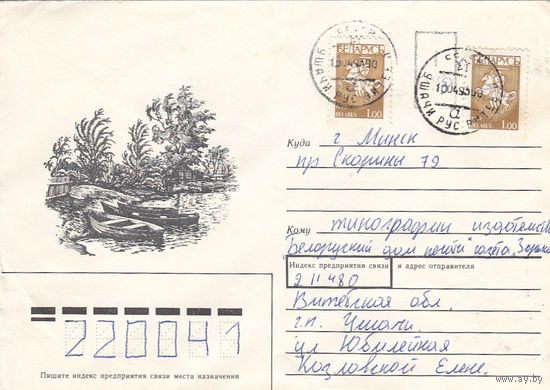 БЕЛАРУСЬ
1.00
BELARUS
БЕЛАРУСЬ
1.00
BELARUS
УШАЧЫ
УШАЧЫ
Куда г Минск
пр Скорины 79
Кому типографии издательства
Белоруский дом печати газета „Зорька
Индекс предприятия связи и адрес отправителя
211480
Витебская обл,
г.п. Ушачи
ул Юбилейная
Козловской Елене.
220041
Пишите индекс предприятия связи места назначения
www.ay.by